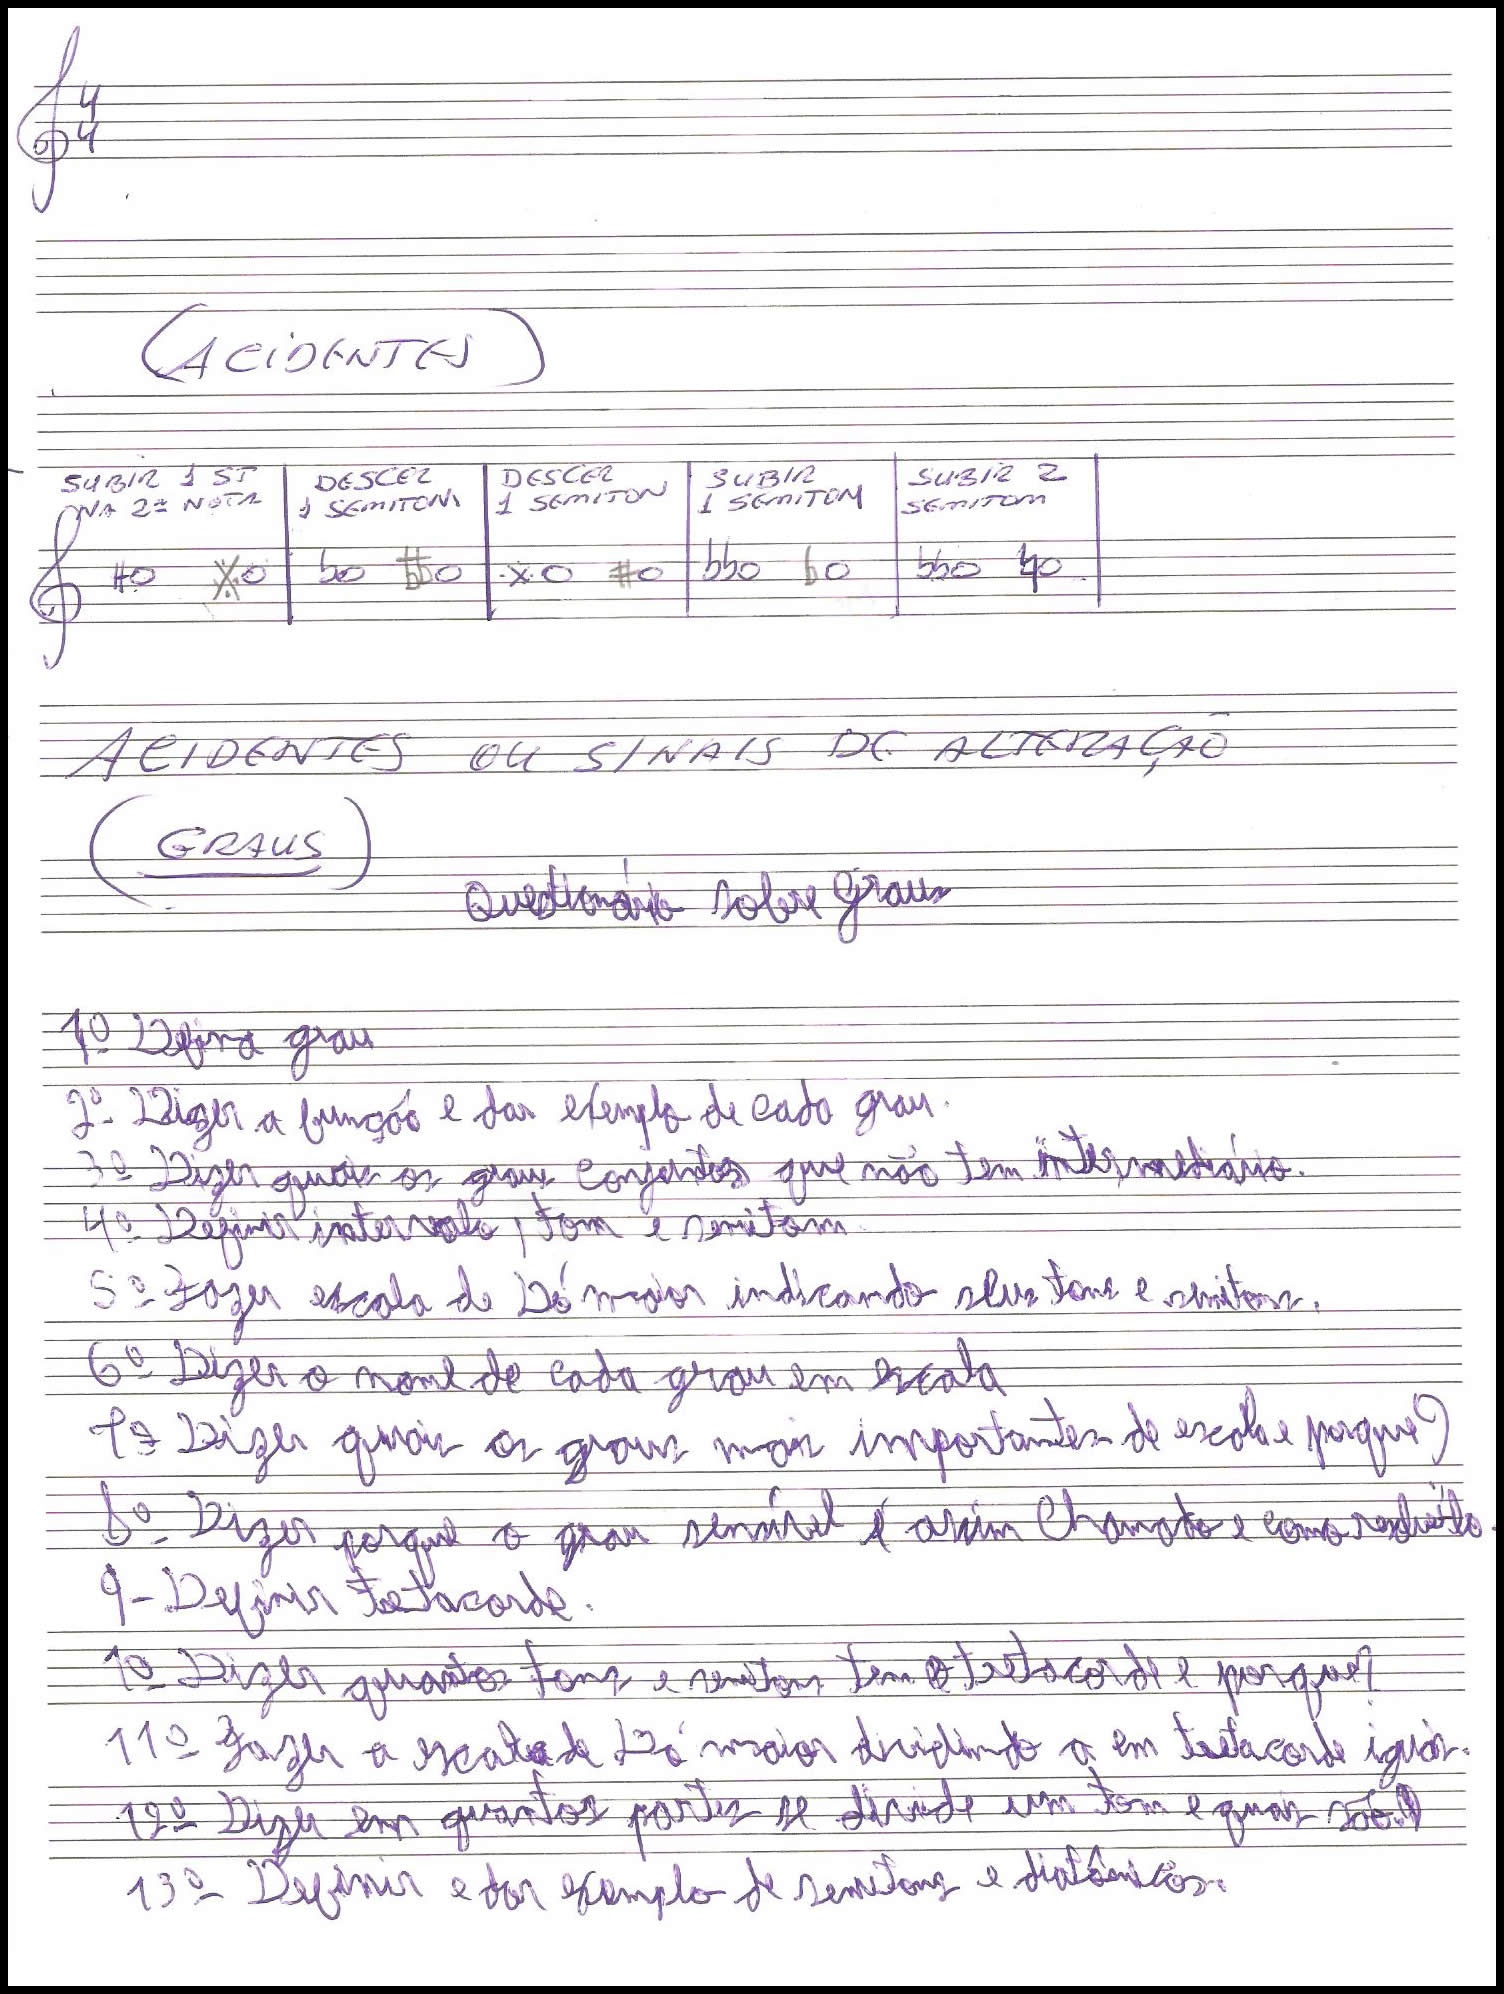 4
4
(ACIDENTES)
SUBIR 1 ST DESCER DESCER SUBIR SUBIR 2
NA 2ª NOTA 1 SEMITOM 1 SEMITON 1 SEMITOM SEMITOM
ACIDENTES OU SINAIS DE ALTERAÇÃO
(GRAUS)
Questionário sobre Graus
1º Defina grau
2º- Dizer a função e dar exemplo de cada grau.
3º- Dizer quais os graus conjuntos que não tem intermediário.
4º- Definir intervalo, tom e semitom.
5º- Fazer escala de Dó maior indicando seus tons e semitons.
6º- Dizer o nome de cada grau em escala
7ª Dizer quais os graus mais importantes de escala e porque?
8º- Dizer porque o grau sensível é assim chamado e como
9- Definir tetacorde.
1º Dizer quantos tons e semitons tem o tetracorde e porque?
11º- Fazer a escala de Dó maior dividindo a em tetacorde iguais.
12º- Dizer em quantos partes se divide um tom e quais são?
13º- Definir e dar exemplo de semitons e diatônicos.